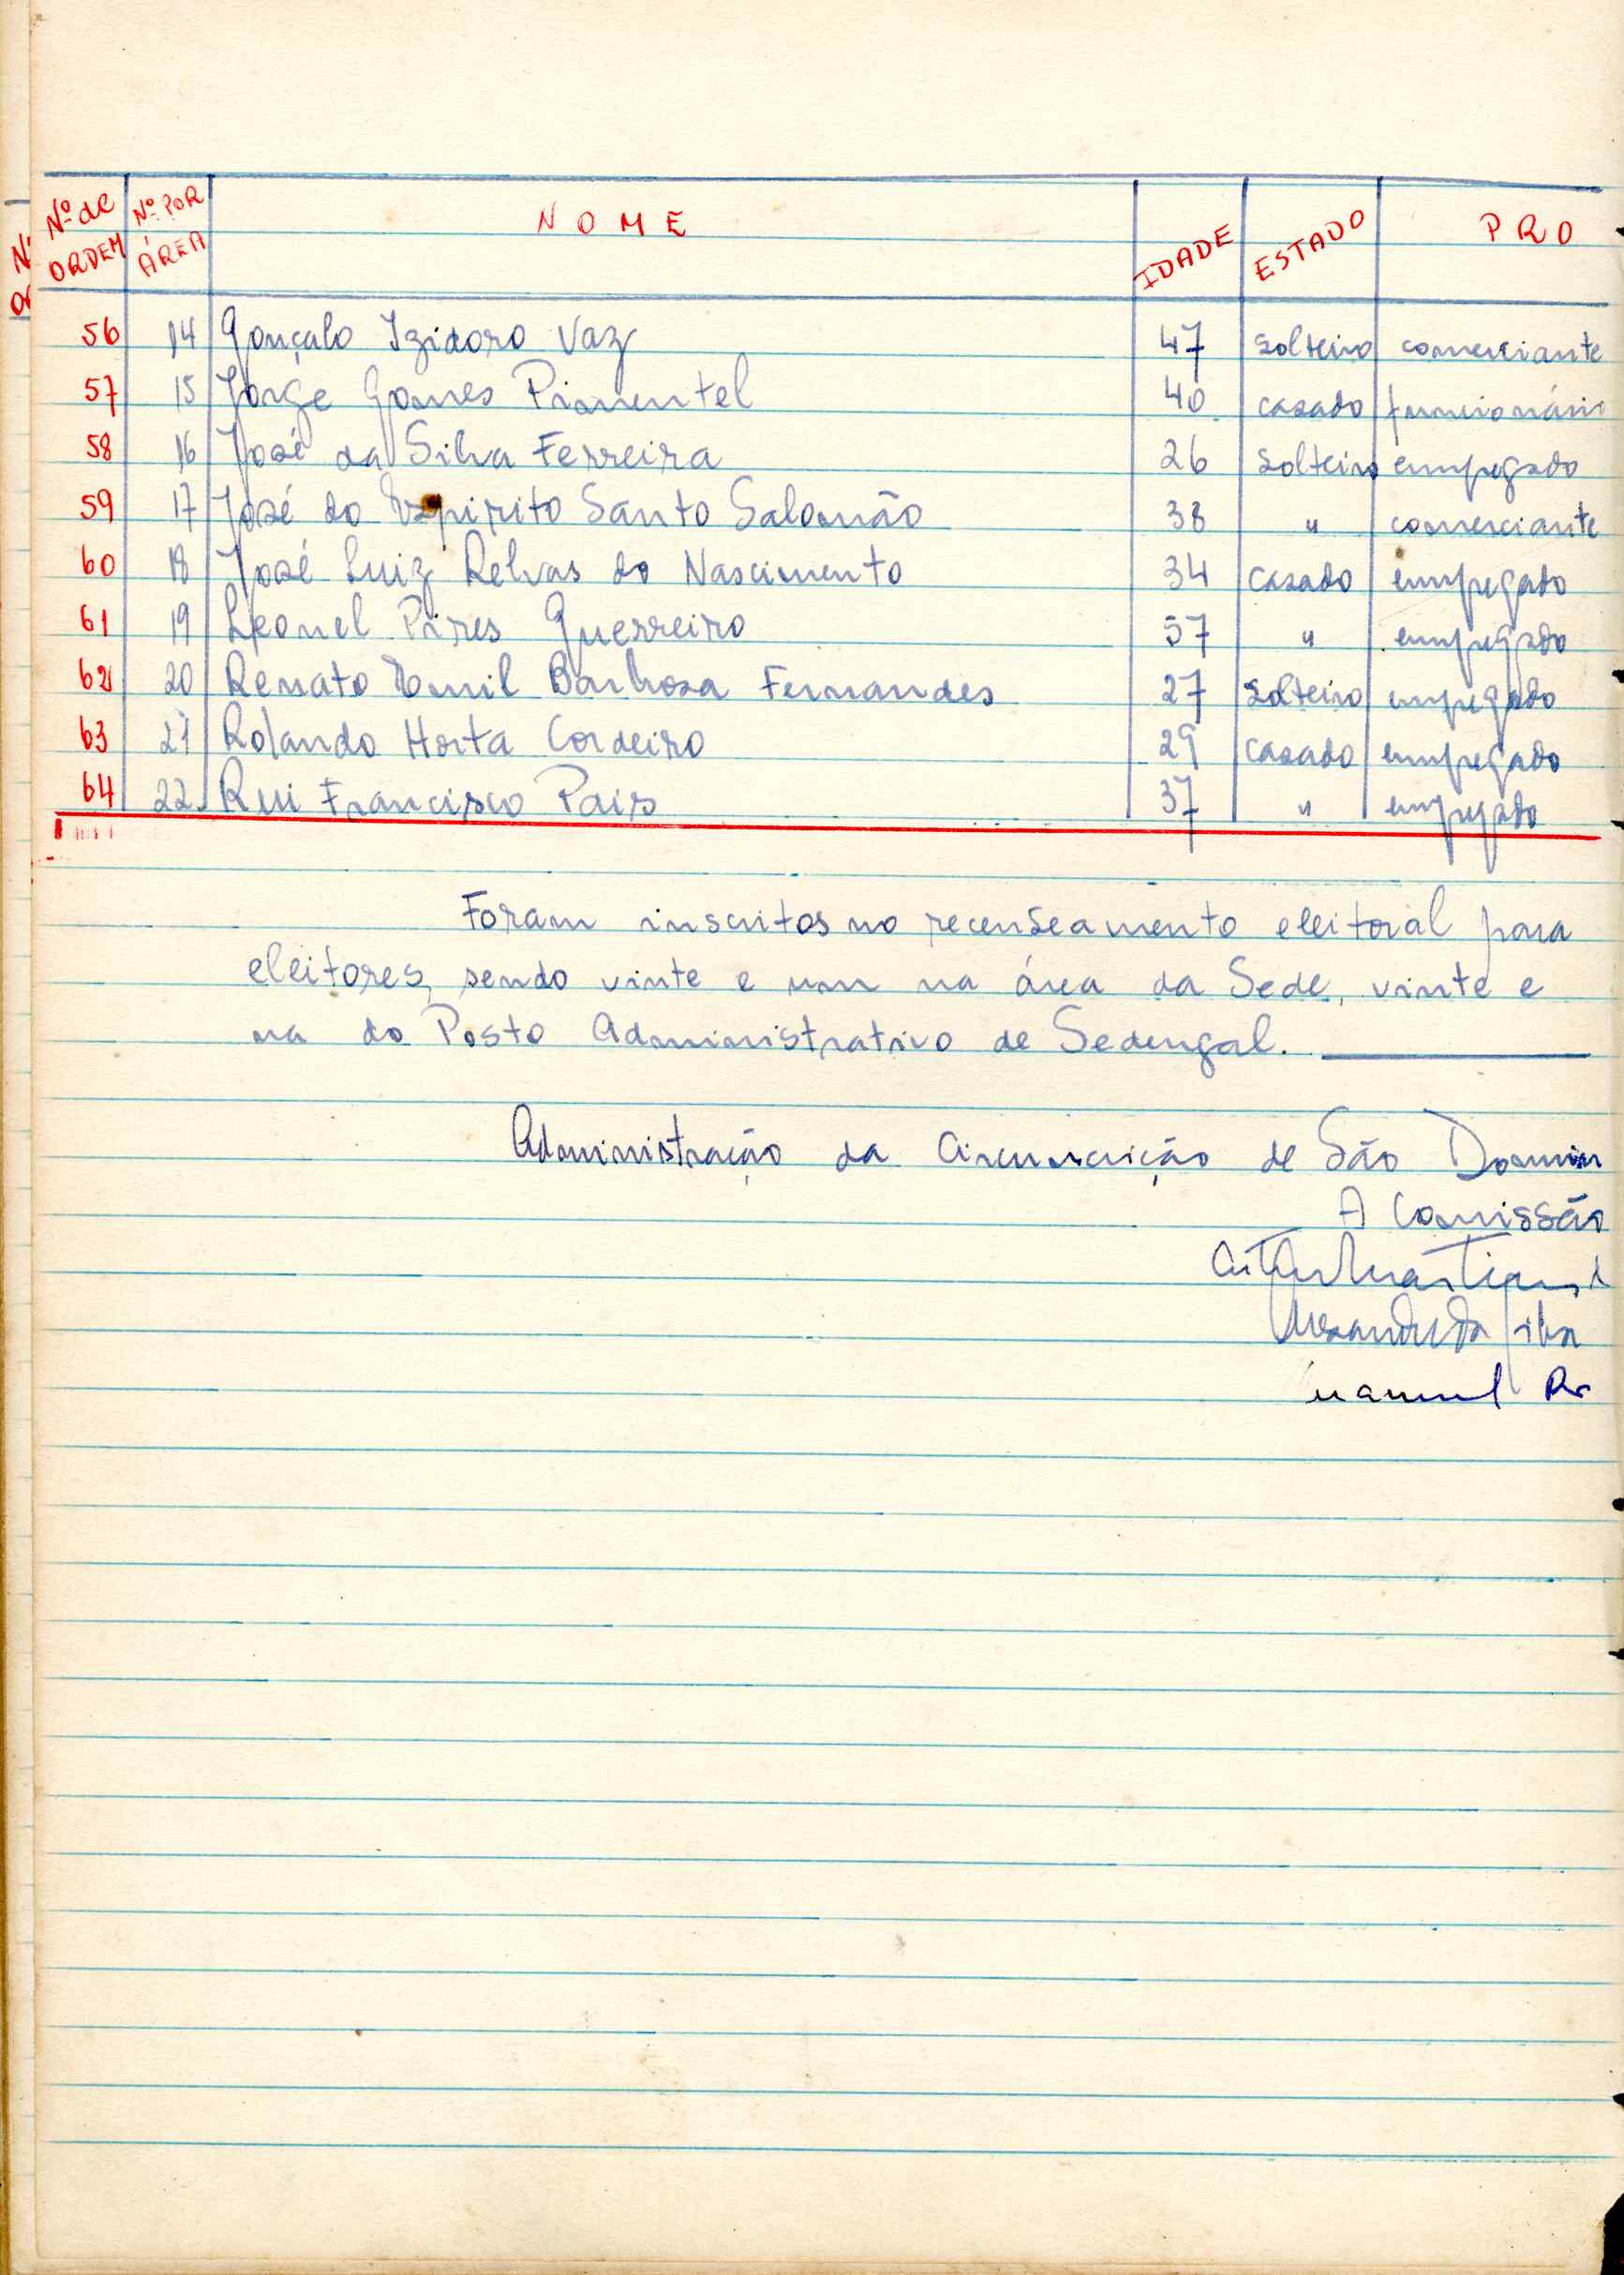 Nº de ORDEM Nº POR ÁREA NOME IDADE ESTADO PRO
56 14 Gonçalo Izidoro Vaz 47 solteiro comerciante
57 15 Jorge Gomes Pimentel 40 casado funcionário
58 16 José da Silva Ferreira 26 solteiro empregado
59 17 José do Espirito Santo Salomão 38 " comerciante
60 18 José Luiz Relvas do Nascimento 34 casado empregado
61 19 Leonel Pires Guerreiro 57 " empregado
62 20 Renato Emil Barbosa Fernandes 27 solteiro empregado
63 21 Rolando Horta Cordeiro 29 casado empregado
64 22 Rui Francisco Pais 37 " empregado
Foram inscritos no recenseamento eleitoral para
eleitores, sendo vinte e um na área da Sede, vinte e
na do Posto Administrativo de Sedengal.
Administração da Circunscrição de São Domin
A Comissão
Manuel